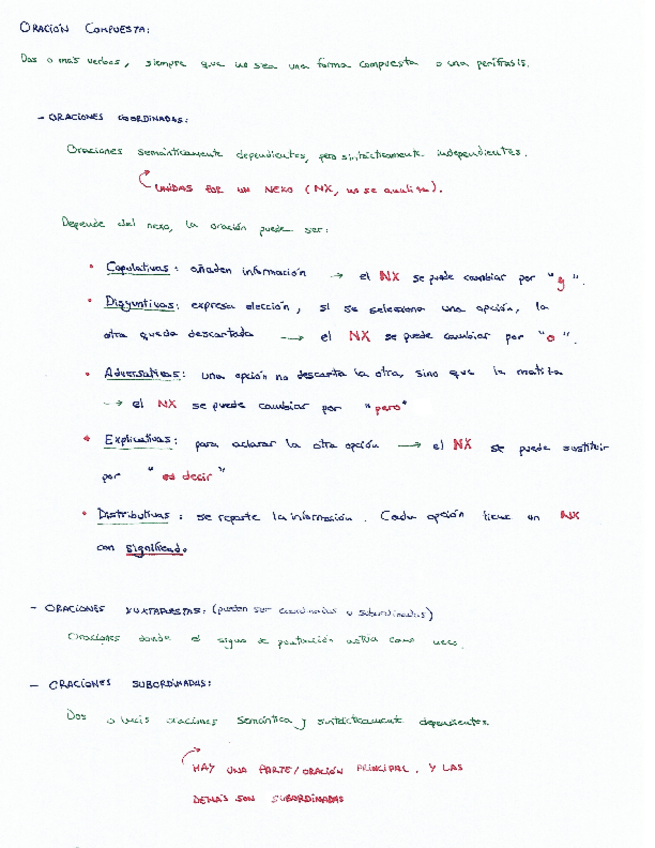 ORACIÓN COMPUESTA:
Dos o más verbos, siempre que no sea una forma compuesta o una perífrasis.
- ORACIONES COORDINADAS:
Oraciones semánticamente dependientes, pero sintácticamente independientes.
UNIDAS POR UN NEXO (NX, no se analiza).
Depende del nexo, la oración puede ser:
• Copulativas: añaden información → el NX se puede cambiar por "y".
• Disyuntivas: expresa elección, si se selecciona una opción, la
otra queda descartada → el NX se puede cambiar por "o".
• Adversativas: una opción no descarta la otra, sino que la matiza
→ el NX se puede cambiar por "pero"
• Explicativas: para aclarar la otra opción → el NX se puede sustituir
por "es decir"
• Distributivas: se reparte la información. Cada opción tiene un NX
con significado
- ORACIONES YUXTAPUESTAS: (pueden ser coordinadas o subordinadas)
Oraciones donde el signo de puntuación actúa como nexo.
- ORACIONES SUBORDINADAS:
Dos o más oraciones semántica y sintácticamente dependientes.
HAY UNA PARTE/ORACIÓN PRINCIPAL. Y LAS
DEMÁS SON SUBORDINADAS